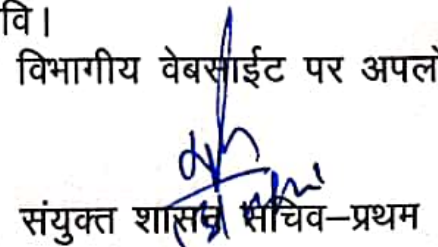 वि।
विभागीय वेबसाईट पर अपलो
संयुक्त शासन सचिव–प्रथम